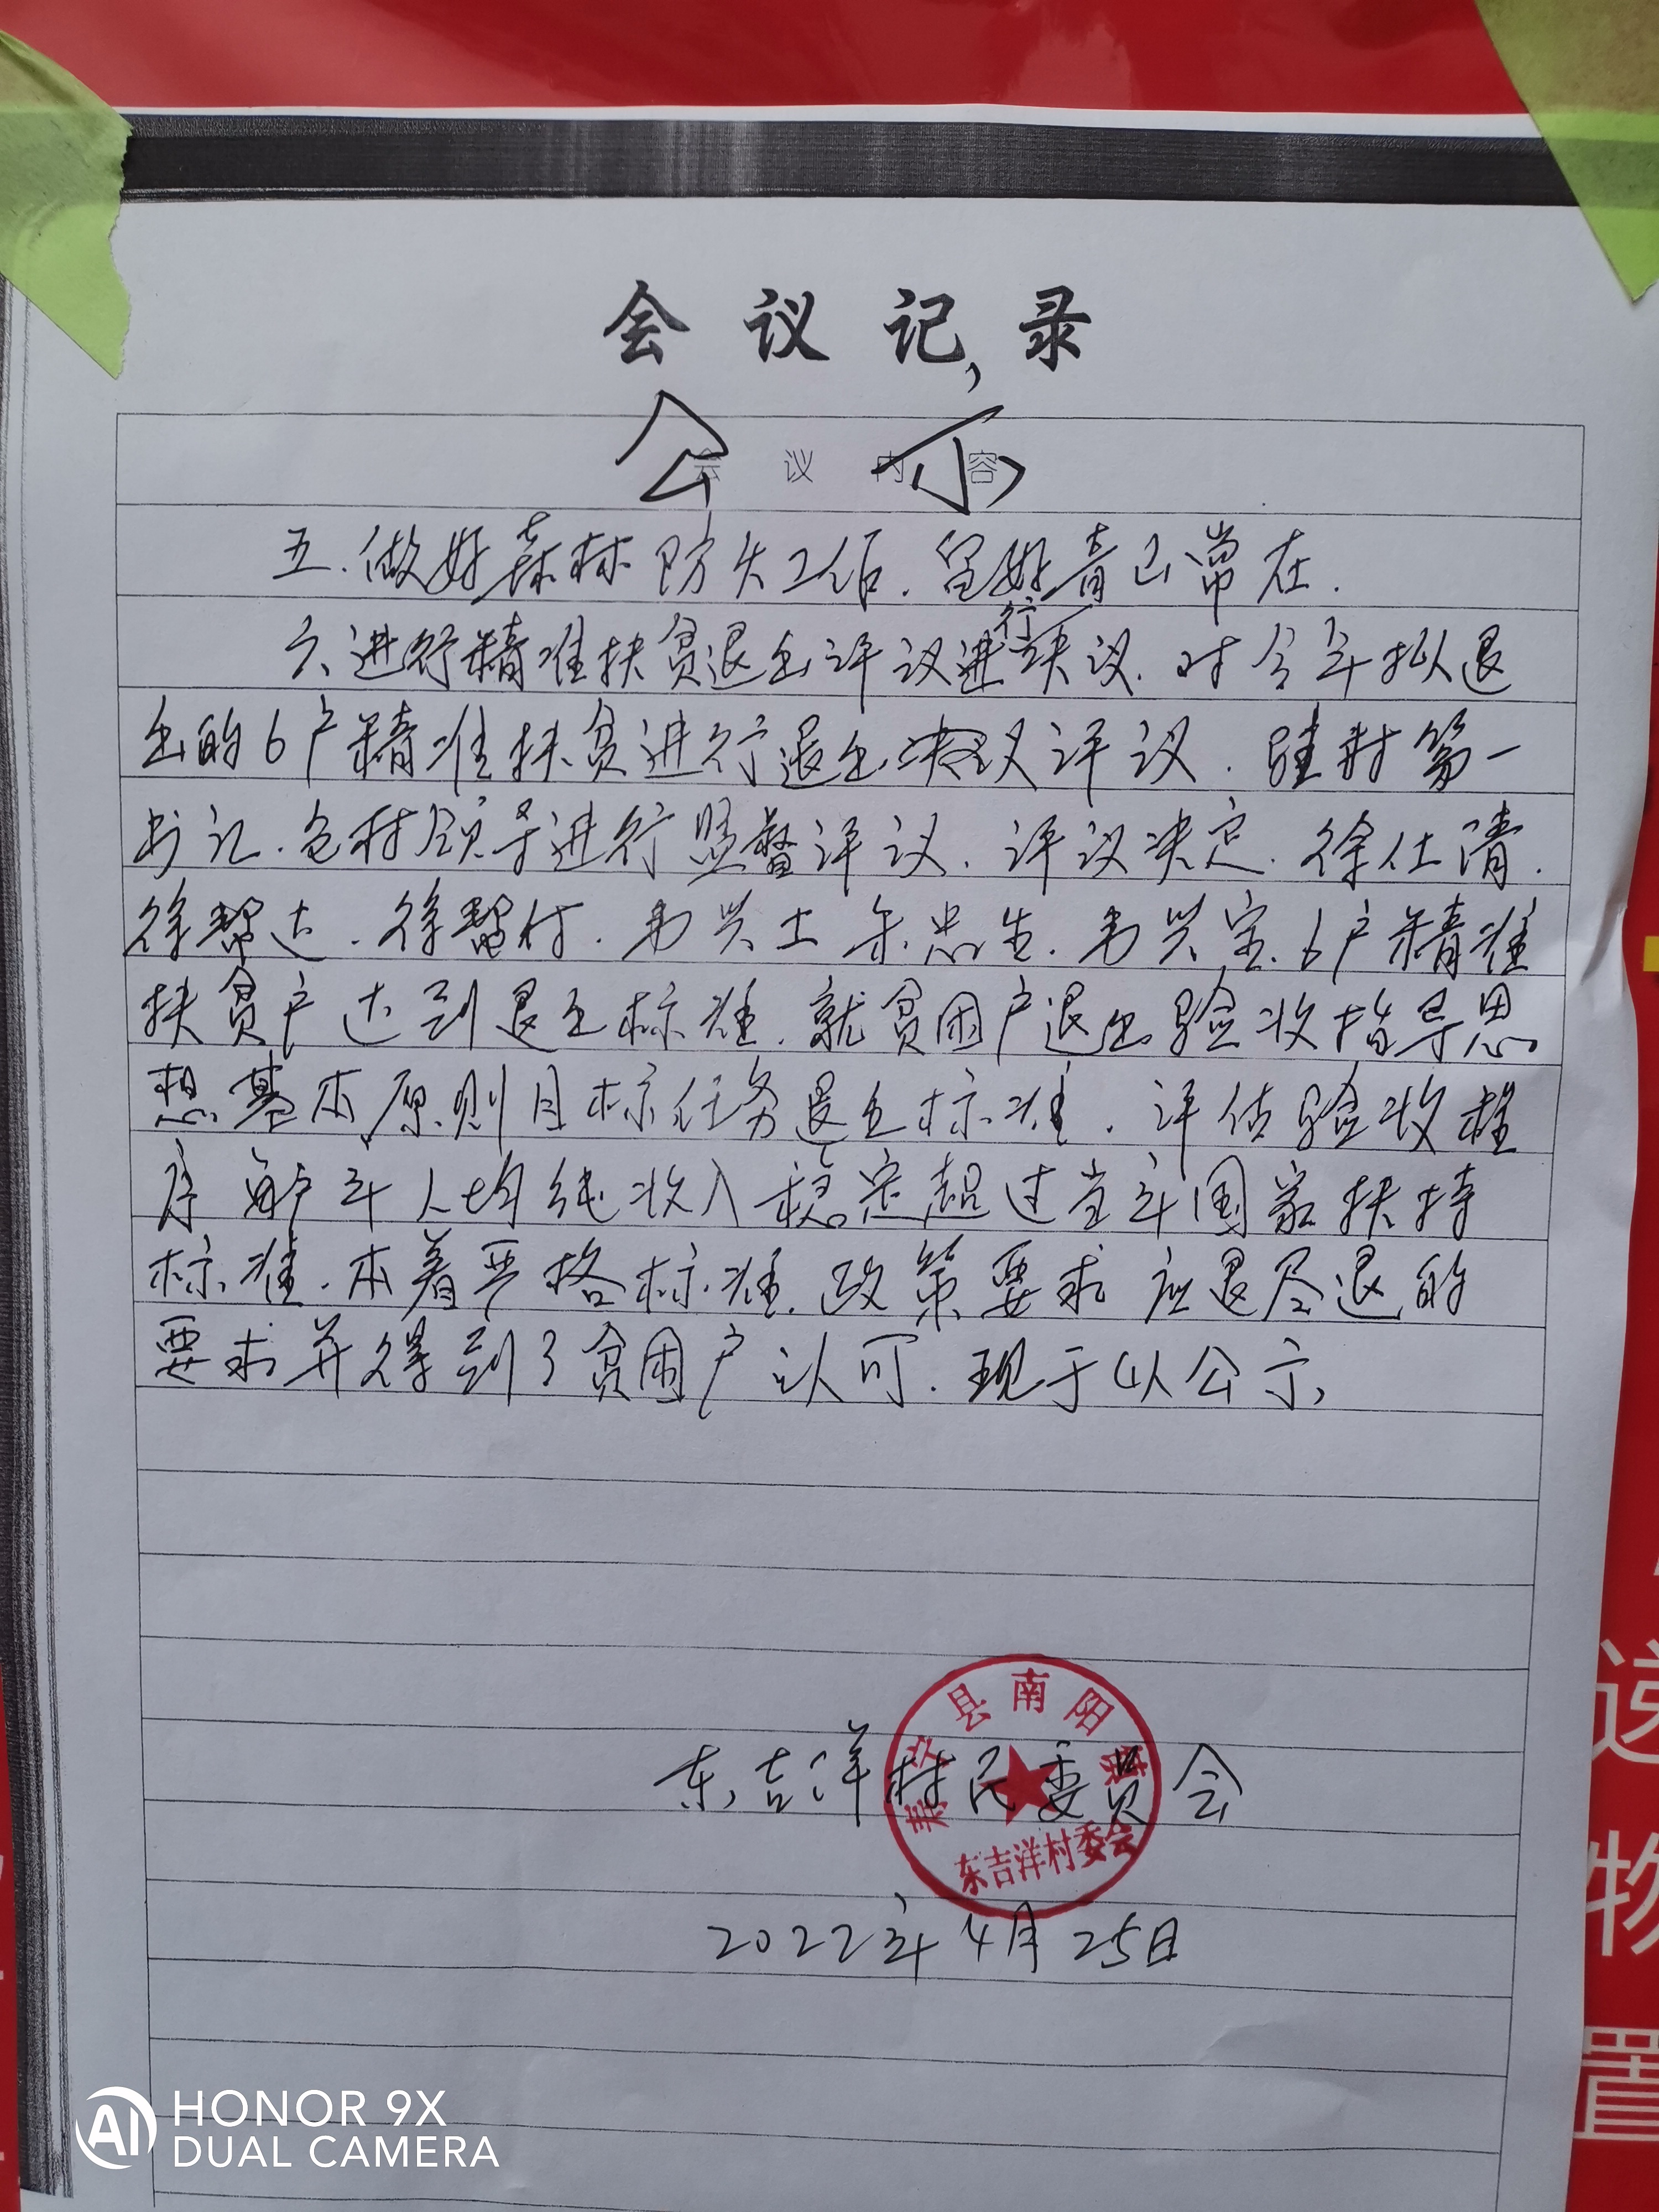 会议记录
公示
会议内容
五.做好森林防火工作.留好青山常在.
六进行精准扶贫退出评议进行决议.对今年拟退
出的6户精准扶贫进行退出决议评议.驻村第一
书记.包村领导进行监督评议.评议决定.徐仕清.
徐帮达.徐帮付.韦兴士 朱忠生.韦兴宝.6户精准
扶贫户达到退出标准.就贫困户退出验收指导思
想基本原则目标任务退出标准.评估验收程
序每户年人均纯收入稳定超过当年国家扶持
标准.本着严格标准.政策要求应退尽退的
要求并得到了贫困户认可.现于以公示,
东吉洋村民委员会
寿宁县南阳镇
东吉洋村委会
2022年4月25日
送
物
置
AI HONOR 9X
DUAL CAMERA